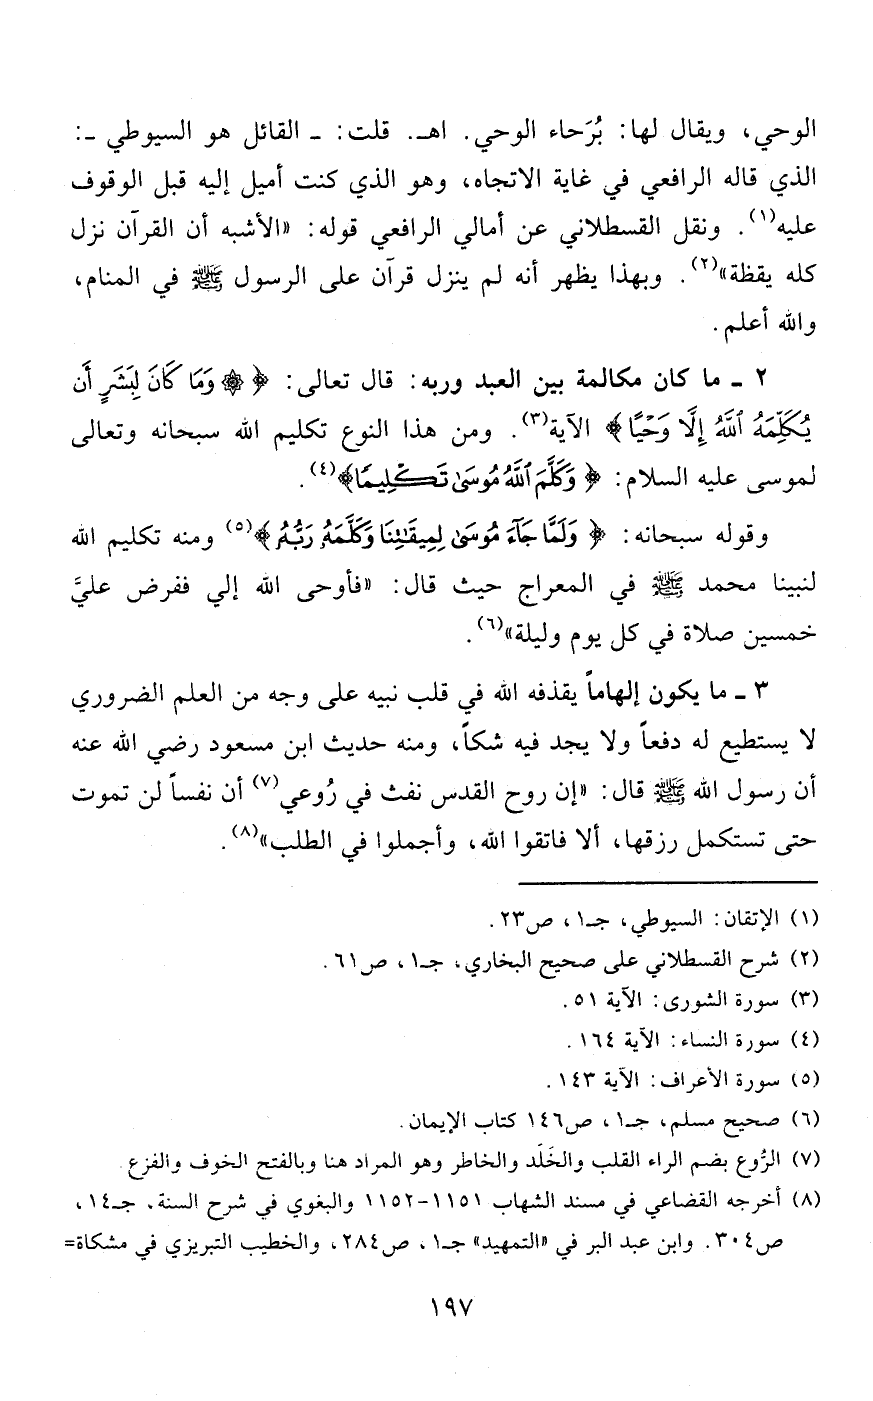 الوحي، ويقال لها: بُرَحاء الوحي. اهـ. قلت: ـ القائل هو السيوطي ـ:
الذي قاله الرافعي في غاية الاتجاه، وهو الذي كنت أميل إليه قبل الوقوف
عليه(١). ونقل القسطلاني عن أمالي الرافعي قوله: «الأشبه أن القرآن نزل
كله يقظة»(٢). وبهذا يظهر أنه لم ينزل قرآن على الرسول ﷺ في المنام،
والله أعلم.
٢ ـ ما كان مكالمة بين العبد وربه: قال تعالى: ﴿ ۞ وَمَا كَانَ لِبَشَرٍ أَن
يُكَلِّمَهُ ٱللَّهُ إِلَّا وَحْيًا ﴾ الآية(٣). ومن هذا النوع تكليم الله سبحانه وتعالى
لموسى عليه السلام: ﴿ وَكَلَّمَ ٱللَّهُ مُوسَىٰ تَكْلِيمًا﴾(٤).
وقوله سبحانه: ﴿ وَلَمَّا جَآءَ مُوسَىٰ لِمِيقَٰتِنَا وَكَلَّمَهُۥ رَبُّهُۥ ﴾(٥) ومنه تكليم الله
لنبينا محمد ﷺ في المعراج حيث قال: «فأوحى الله إلي ففرض عليَّ
خمسين صلاة في كل يوم وليلة»(٦).
٣ ـ ما يكون إلهاماً يقذفه الله في قلب نبيه على وجه من العلم الضروري
لا يستطيع له دفعاً ولا يجد فيه شكاً، ومنه حديث ابن مسعود رضي الله عنه
أن رسول الله ﷺ قال: «إن روح القدس نفث في رُوعي(٧) أن نفساً لن تموت
حتى تستكمل رزقها، ألا فاتقوا الله، وأجملوا في الطلب»(٨).
(١) الإتقان: السيوطي، جـ١، ص٢٣.
(٢) شرح القسطلاني على صحيح البخاري، جـ١، ص٦١.
(٣) سورة الشورى: الآية ٥١.
(٤) سورة النساء: الآية ١٦٤.
(٥) سورة الأعراف: الآية ١٤٣.
(٦) صحيح مسلم، جـ١، ص١٤٦ كتاب الإيمان.
(٧) الرُّوع بضم الراء القلب والخَلَد والخاطر وهو المراد هنا وبالفتح الخوف والفزع.
(٨) أخرجه القضاعي في مسند الشهاب ١١٥١-١١٥٢ والبغوي في شرح السنة، جـ١٤،
ص٣٠٤. وابن عبد البر في «التمهيد» جـ١، ص٢٨٤، والخطيب التبريزي في مشكاة=
١٩٧